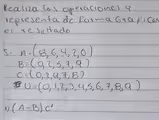 Realiza las operaciones y
representa de forma Grafica
el resultado
5. A=(8,6,4,2,0)
B=(0,2,5,7,9)
C=(0,3,4,7,8)
U=(0,1,2,3,4,5,6,7,8,9)
(A-B)∩C'